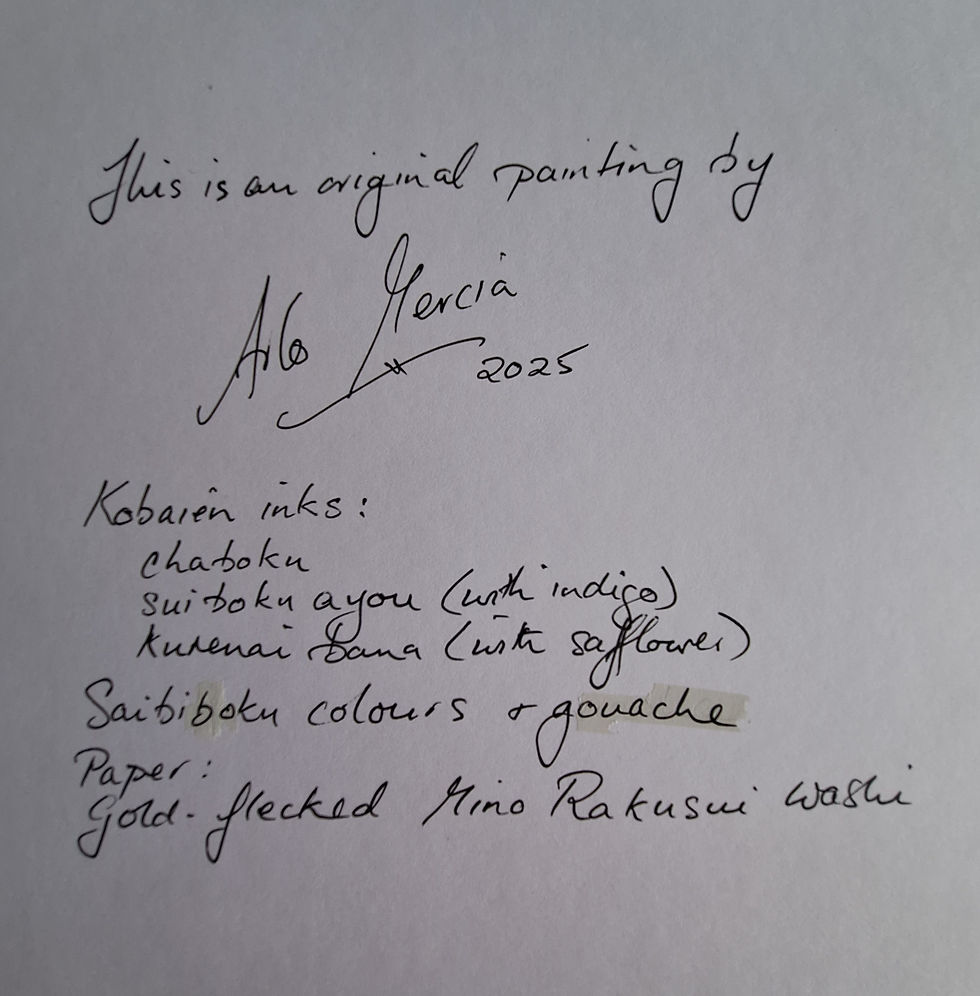 This is an original painting by
Arlo Mercia
2025
Kobaien inks:
chaboku
suiboku ayou (with indigo)
kurenai bana (with safflower)
Saibiboku colours + gouache
Paper:
Gold-flecked Mino Rakusui washi